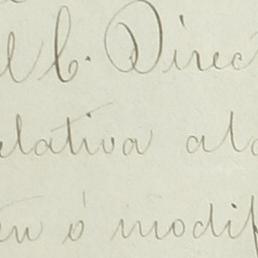 l C. Direc
elativa ala
en ó modif